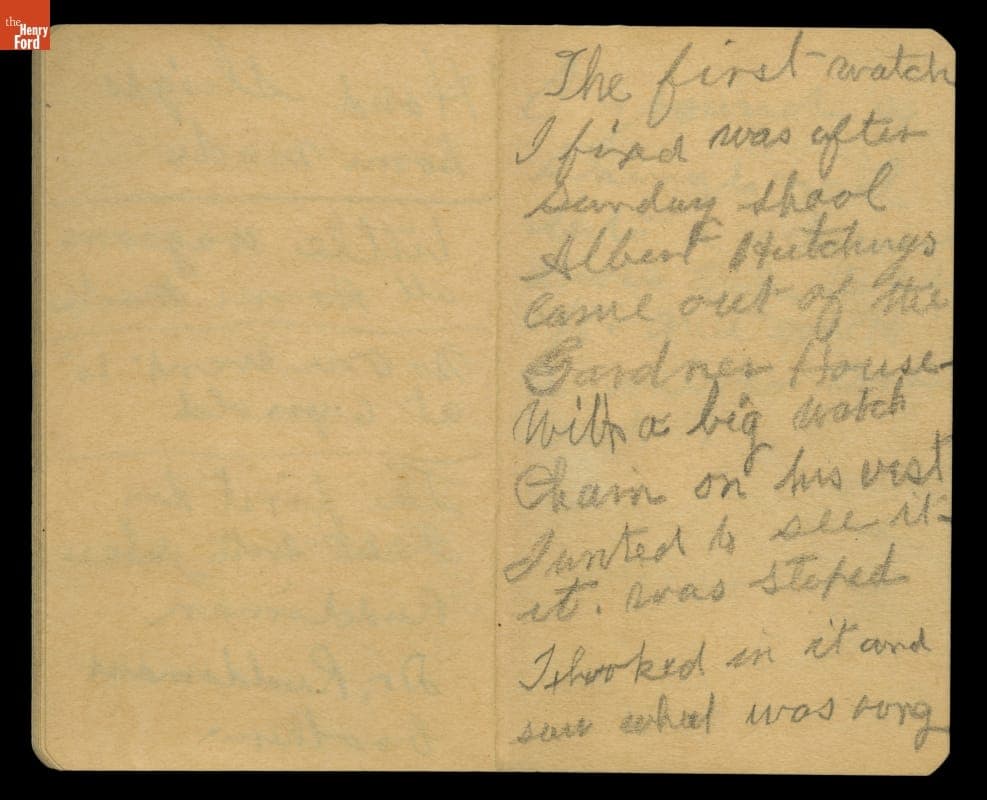 the
Henry
Ford
The first watch
I fixed was after
Sunday shool
Albert Hutchings
came out of the
Gardner house
With a big watch
Chain on his vest
I unted to see it
it. was stoped
I looked in it and
saw what was rong